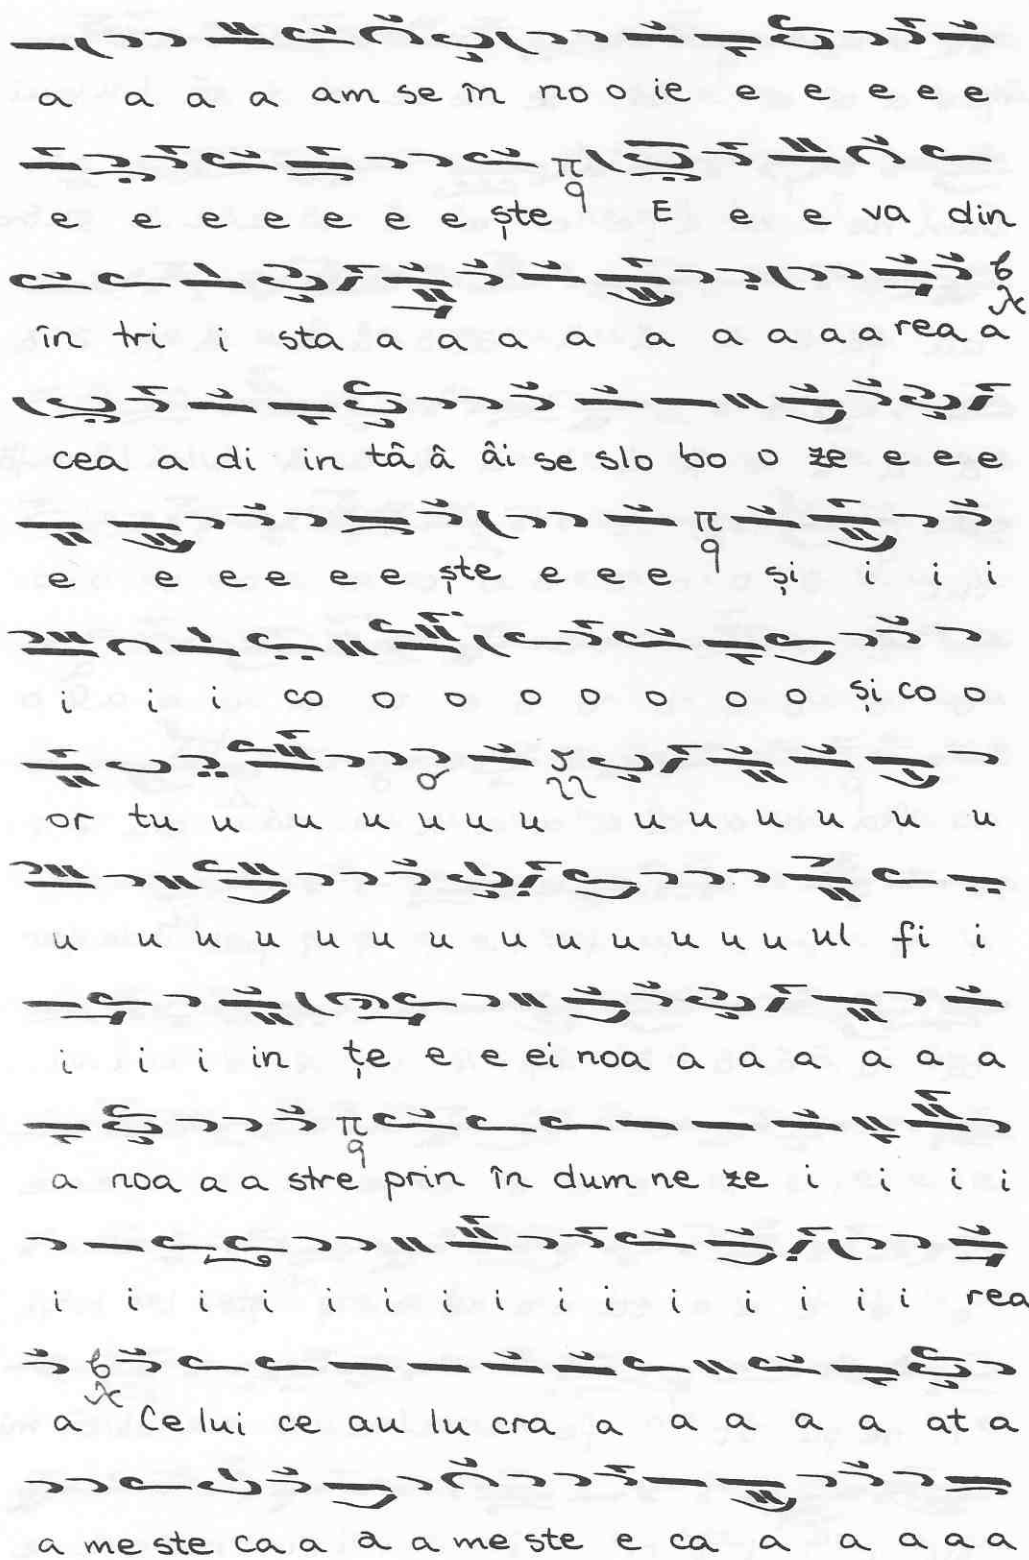 a a a a am se în no o ie e e e e e
e e e e e e e ște π q E e e va din
în tri i sta a a a a a a a a a rea a
cea a di in tâ â âi se slo bo o ze e e e
e e e e e e ște e e e π q și i i i
i i i co o o o o o o o și co o
or tu u u u u u u u u u u u u
u u u u u u u u u u u u ul fi i
i i i in țe e e ei noa a a a a a a
a noa a a stre π q prin în dum ne ze i i i i
i i i i i i i i i i i i i i rea
a Ce lui ce au lu cra a a a a a at a
a me ste ca a a a me ste e ca a a a a a